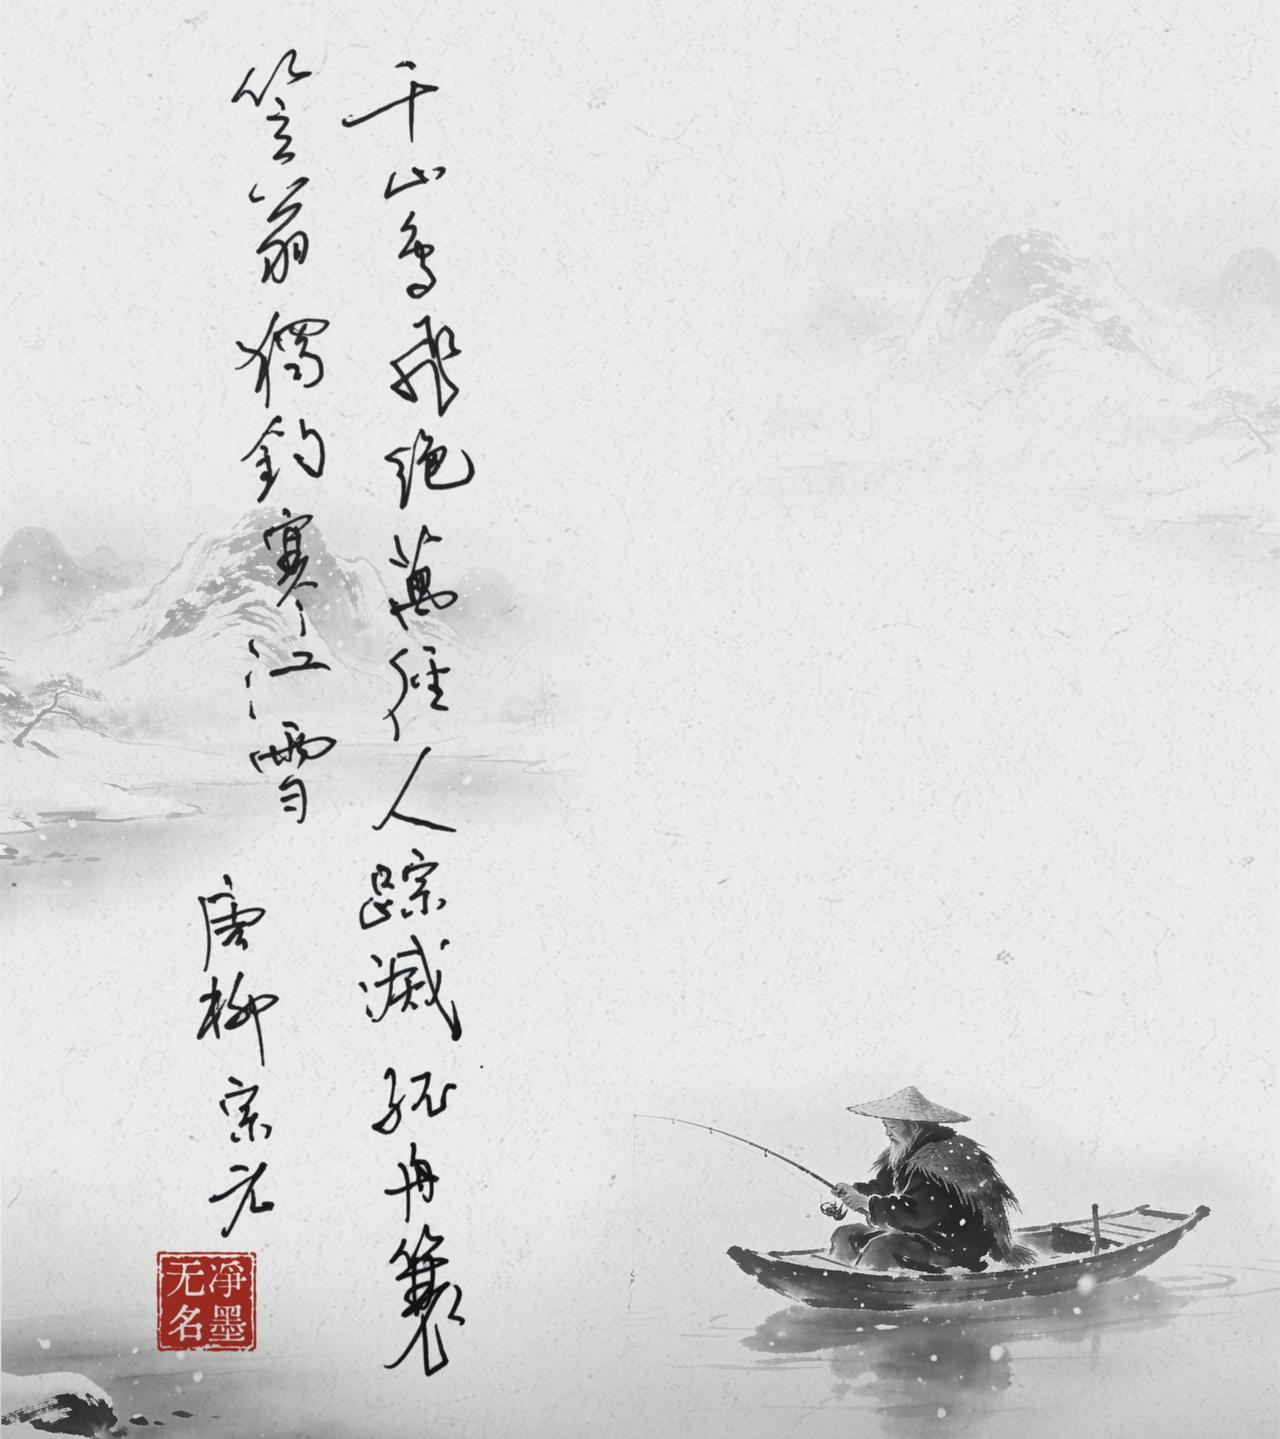 千山鸟飛绝萬径人踪滅孤舟簑
笠翁獨釣寒江雪
唐柳宗元
净墨
无名